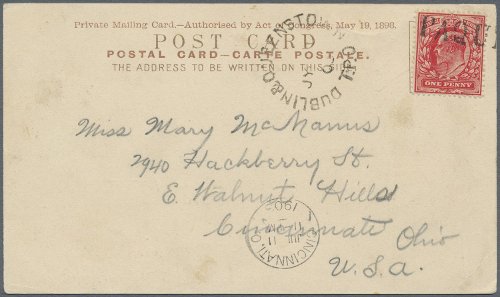 Private Mailing Card.—Authorised by Act of Congress, May 19, 1898.
POST CARD
POSTAL CARD—CARTE POSTALE.
THE ADDRESS TO BE WRITTEN ON THIS SIDE
DUBLIN & QUEENSTOWN
T.P.O
JY
ONE PENNY
Miss Mary McManus
2940 Hackberry St.
E. Walnut Hills
Cincinnate Ohio
U.S.a.
CINCINNATI, O.
11
1905